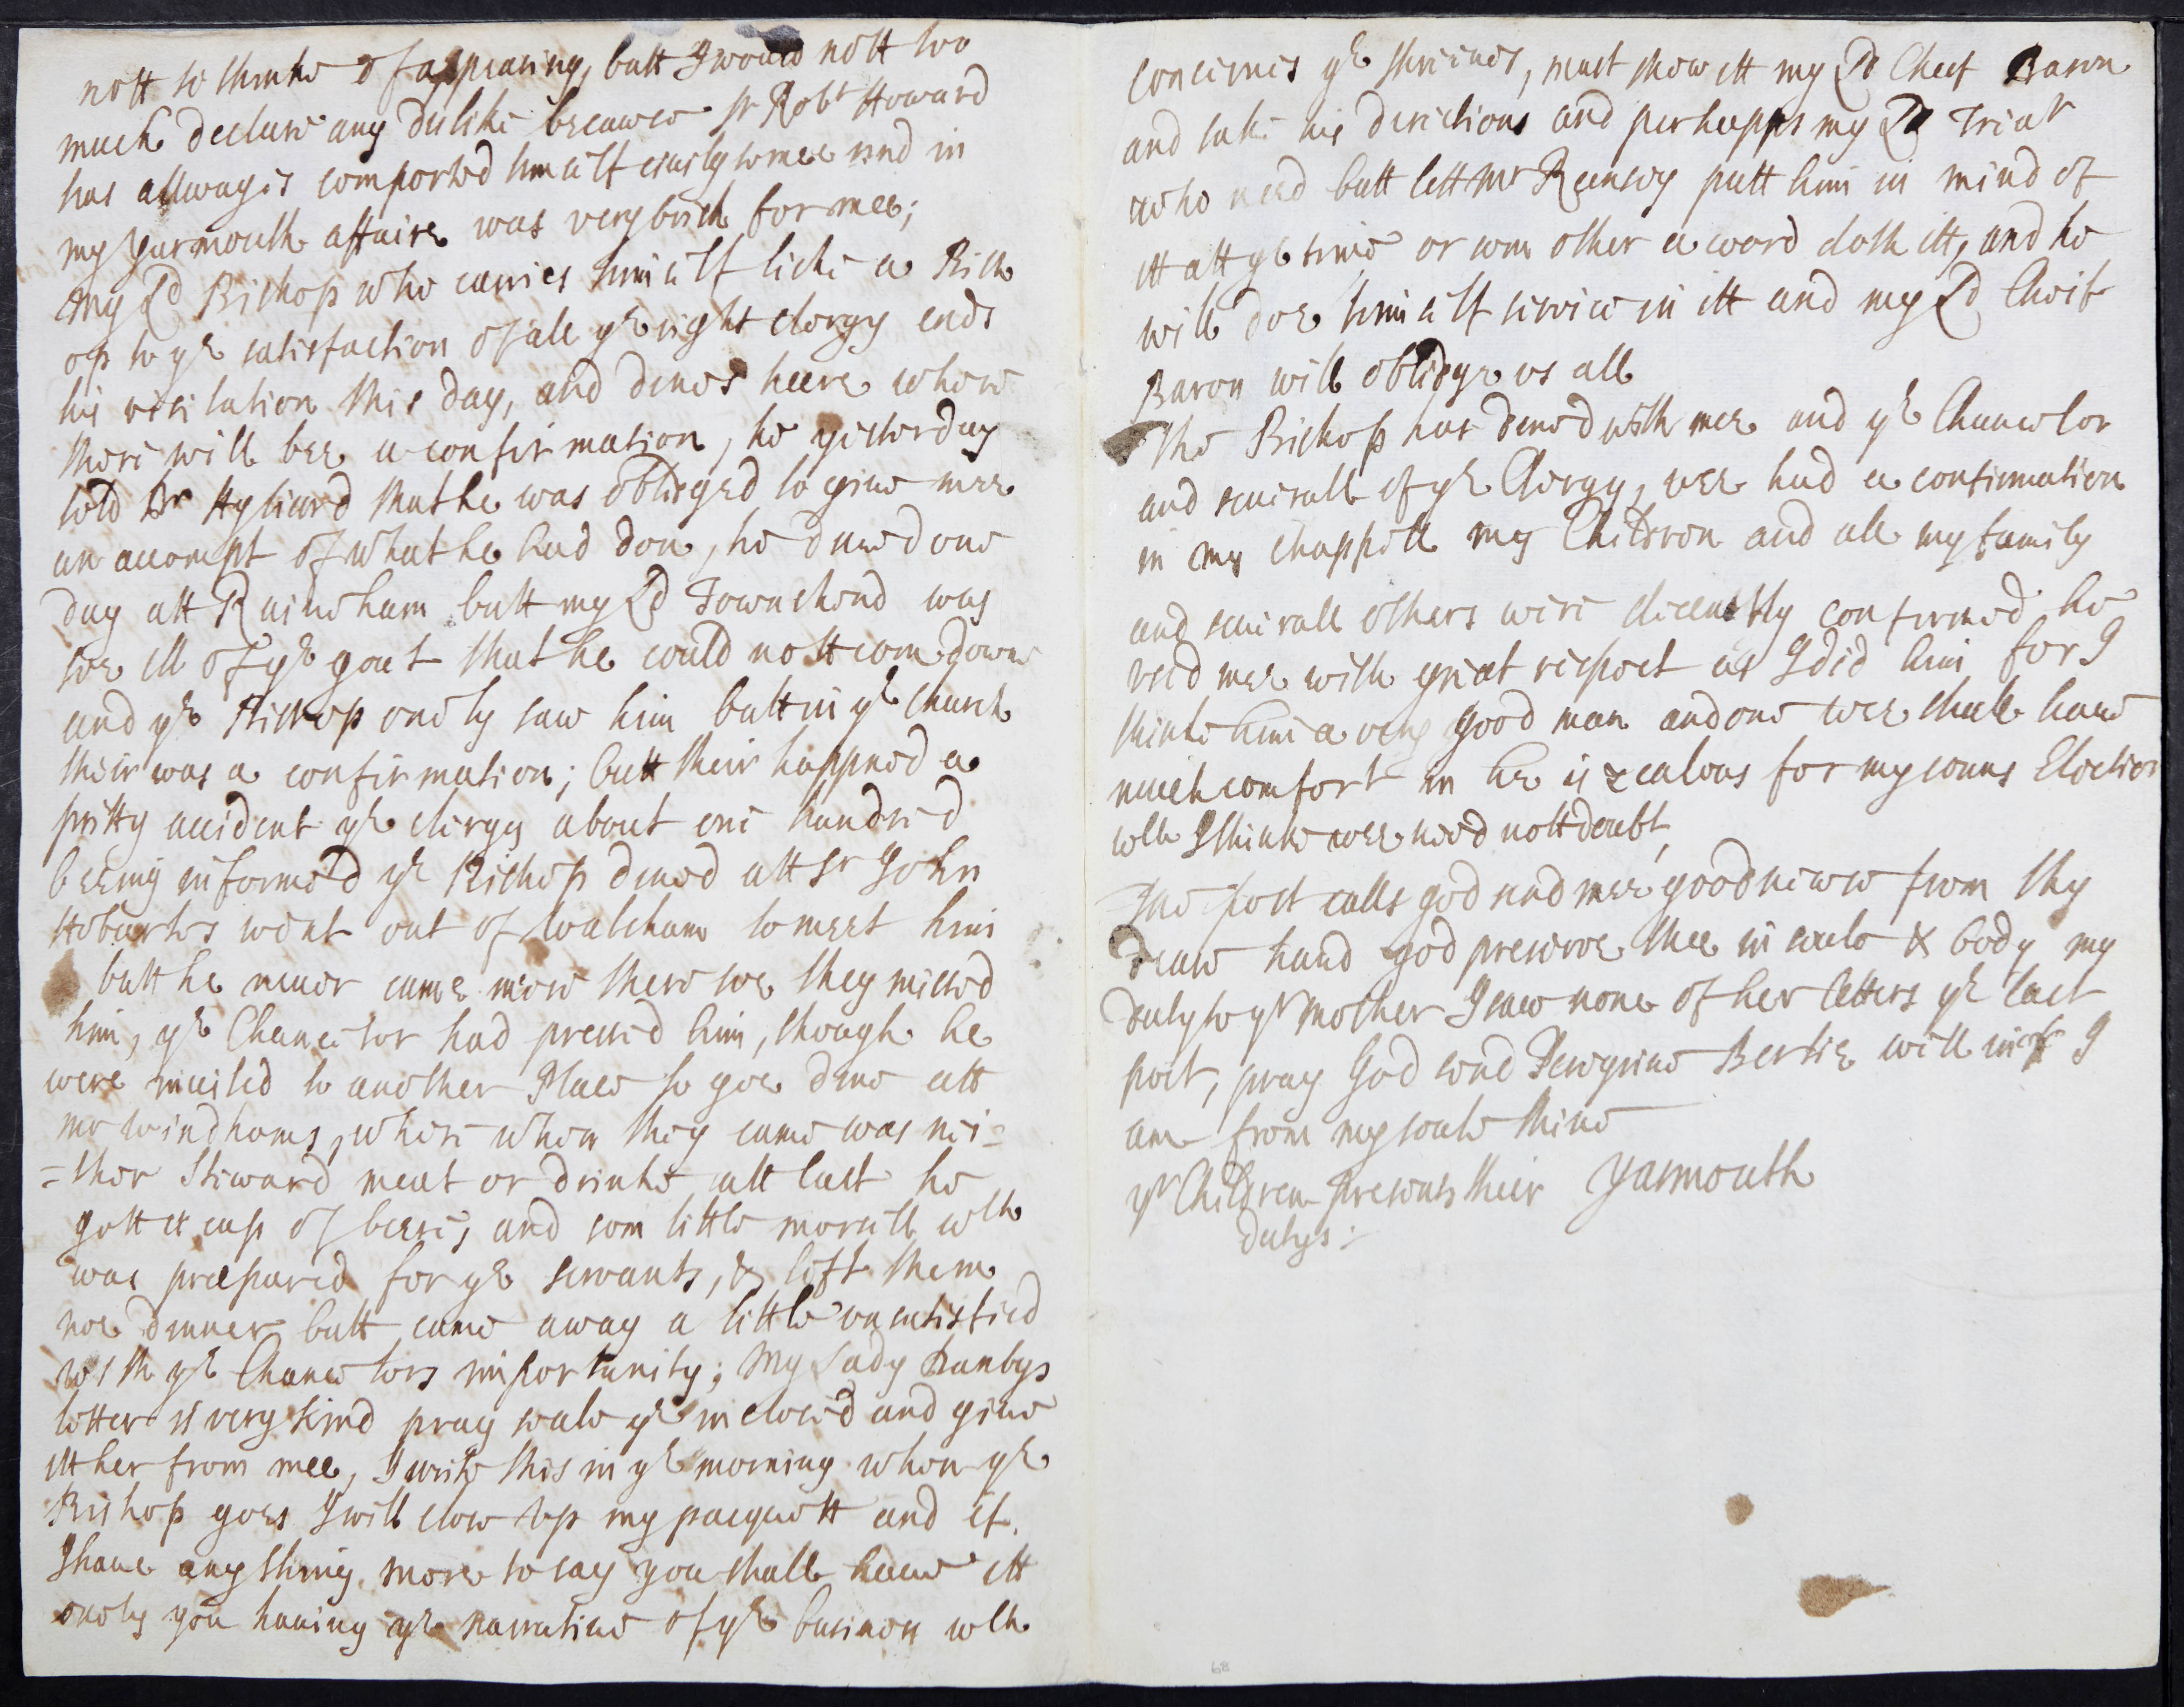 nott to thinke of appearing, butt I would nott too
much declare any dislike because Sr Robt Howard
has allwayes comported himself easily to mee and in
my Yarmouth affaire was very brisk for mee;
My Ld Bishop who carries himself like a Bish
op to ye satisfaction of all ye right clergy ends
his visitation this day, and dines heere where
there will bee a confirmation, he yesterday
told Dr Hyliard that he was obliged to give mee
an accompt of what he had don, he dined one
day att Raineham butt my Ld Townshend was
soe ill of ye gout that he could nott com downe
and ye Bishop onely saw him butt in ye church
their was a confirmation; butt their happned a
pritty accident ye clergy about one hundred
beeing informed ye Bishop dined att Sr John
Hobarts went out of Walsham to meet him
butt he never came neere there soe they missed
him, ye Chancelor had pressed him, though he
were invited to another Place to goe dine att
mr Windhams, where when they came was nei=
=ther Steward meat or drinke att last he
gott a cup of beere, and som little morsell wch
was prepared for ye servants, & left them
noe dinner butt came away a little unsatisfied
with ye Chancelors importunity; My Lady Danbys
letter is very kind pray seale ye inclosed and give
itt her from mee, I write this in ye morning when ye
Bishop goes I will close up my pacquett and if
I have any thing more to say you shall have itt
onely you having ye narrative of ye busines wch
concernes ye shreives, must show itt my Ld Cheif Baron
and take his directions and perhapps my Ld Trear
who need butt lett Mr Ramsey putt him in mind of
itt att ye time or som other a word doth itt, and he
will doe himself service in itt and my Ld Cheif
Baron will obledge us all
The Bishop has dined with mee and ye Chancelor
and severall of ye Clergy, wee had a confirmation
in my chappell my Children and all my family
and severall others were decently confirmed he
used mee with great respect as I did him for I
thinke him a very good man and one wee shall have
much comfort in he is zealous for my sonns Election
wch I thinke wee need nott doubt,
The post calls god send mee good newes from thy
deare hand god preserve thee in soule & body my
duty to yr mother I saw none of her letters ye last
post, pray God send Peregrine Bertie will I
am from my soule thine
yr Children presents their Yarmouth
dutys:
68